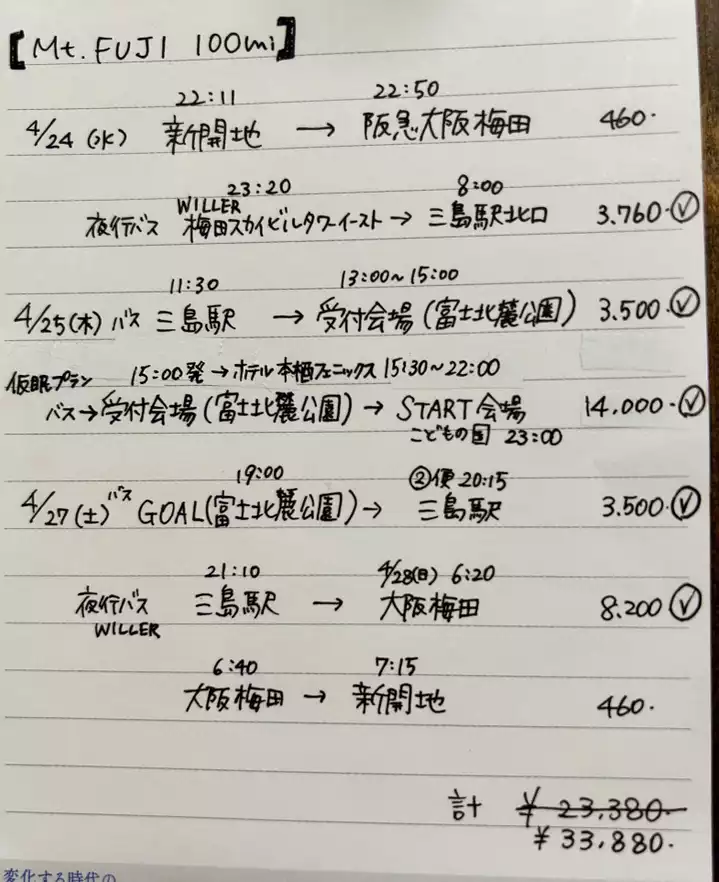 【Mt. FUJI 100mi】
22:11 22:50
4/24(水) 新開地 → 阪急大阪梅田 460.
23:20 8:00
WILLER
夜行バス 梅田スカイビルタワーイースト → 三島駅北口 3.760.✓
11:30 13:00~15:00
4/25(木) バス 三島駅 → 受付会場(富士北麓公園) 3.500.✓
仮眠プラン 15:00発→ホテル本栖フェニックス 15:30~22:00
バス→受付会場(富士北麓公園) → START会場 14.000.✓
こどもの国 23:00
19:00 ②便 20:15
4/27(土) バス GOAL(富士北麓公園)→ 三島駅 3.500.✓
21:10 4/28(日) 6:20
夜行バス 三島駅 → 大阪梅田 8.200✓
WILLER
6:40 7:15
大阪梅田 → 新開地 460.
計 ¥23.380.
¥33.880.
変化する時代の